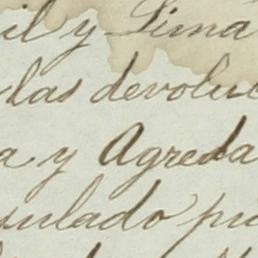 il y Lima
las devoluc
a y Agreda
sulado pu